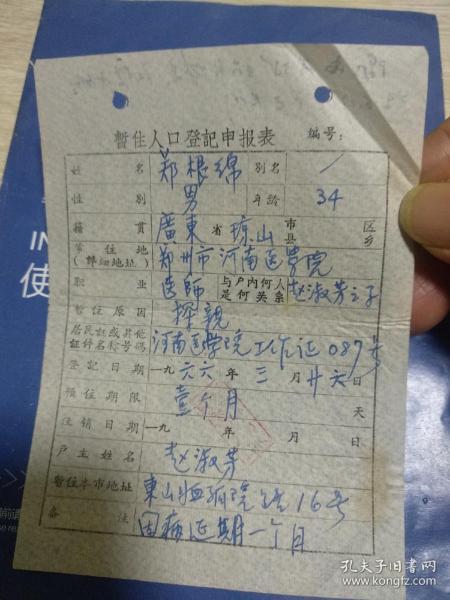 暫住人口登記申报表 编号:
姓名 郑根绵 别名 /
性别 男 年龄 34
籍貫 廣東 省 琼山 市县 区乡
常住地(詳細地址) 郑州市河南医学院
职业 医师 与户内何人是何关系 赵淑芳之子
暫住原因 探親
居民証或其他証件名称号码 河南医学院工作证087号
登記日期 一九六六年三月廿六日
預住期限 壹个月 天
注销日期 一九 年 月 日
户主姓名 赵淑芳
暫住本市地址 東山 16号
备注 因病延期一个月
IN
使
孔夫子旧书网
www.kongfz.com